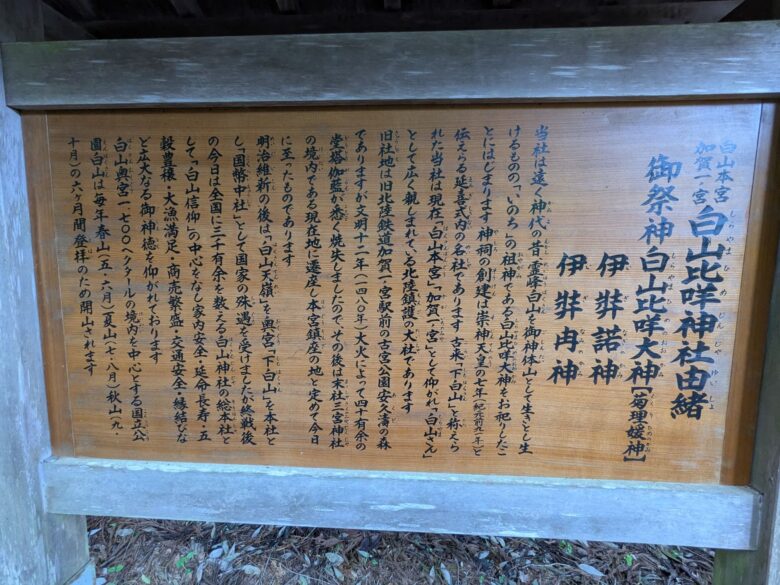 白山本宮
加賀一ノ宮
白山比咩神社由緒
御祭神 白山比咩大神【菊理媛神】
伊弉諾神
伊弉冉神
当社は遠く神代の昔 霊峰白山を御神体山として生きとし生
けるものの「いのち」の祖神である白山比咩大神をお祀りしたこ
とにはじまります 神祠の創建は崇神天皇の七年(紀元前九一年)と
伝えらる延喜式内の名社であります 古来「下白山」と称えら
れた当社は現在「白山本宮」「加賀一ノ宮」として仰がれ「白山さん」
として広く親しまれている北陸鎮護の大社であります
旧社地は旧北陸鉄道加賀一の宮駅前の古宮公園安久濤の森
でありますが文明十二年(一四八〇年)大火によって四十有余の
堂塔伽藍が悉く焼失しましたので、その後は末社三宮神社
の境内である現在地に遷座し本宮鎮座の地と定めて今日
に至ったものであります
明治維新の後は「白山天嶺」を奥宮「下白山」を本社と
し「国幣中社」として国家の殊遇を受けましたが終戦後
の今日は全国に三千有余を数える白山神社の総本社と
して「白山信仰」の中心をなし家内安全・延命長寿・五
穀豊穣・大漁満足・商売繁盛・交通安全・縁結びな
ど広大なる御神徳を仰がれております
白山奥宮一七〇〇ヘクタールの境内を中心とする国立公
園白山は毎年春山(五・六月)夏山(七・八月)秋山(九・
十月)の六ヶ月間登拝のため開山されます